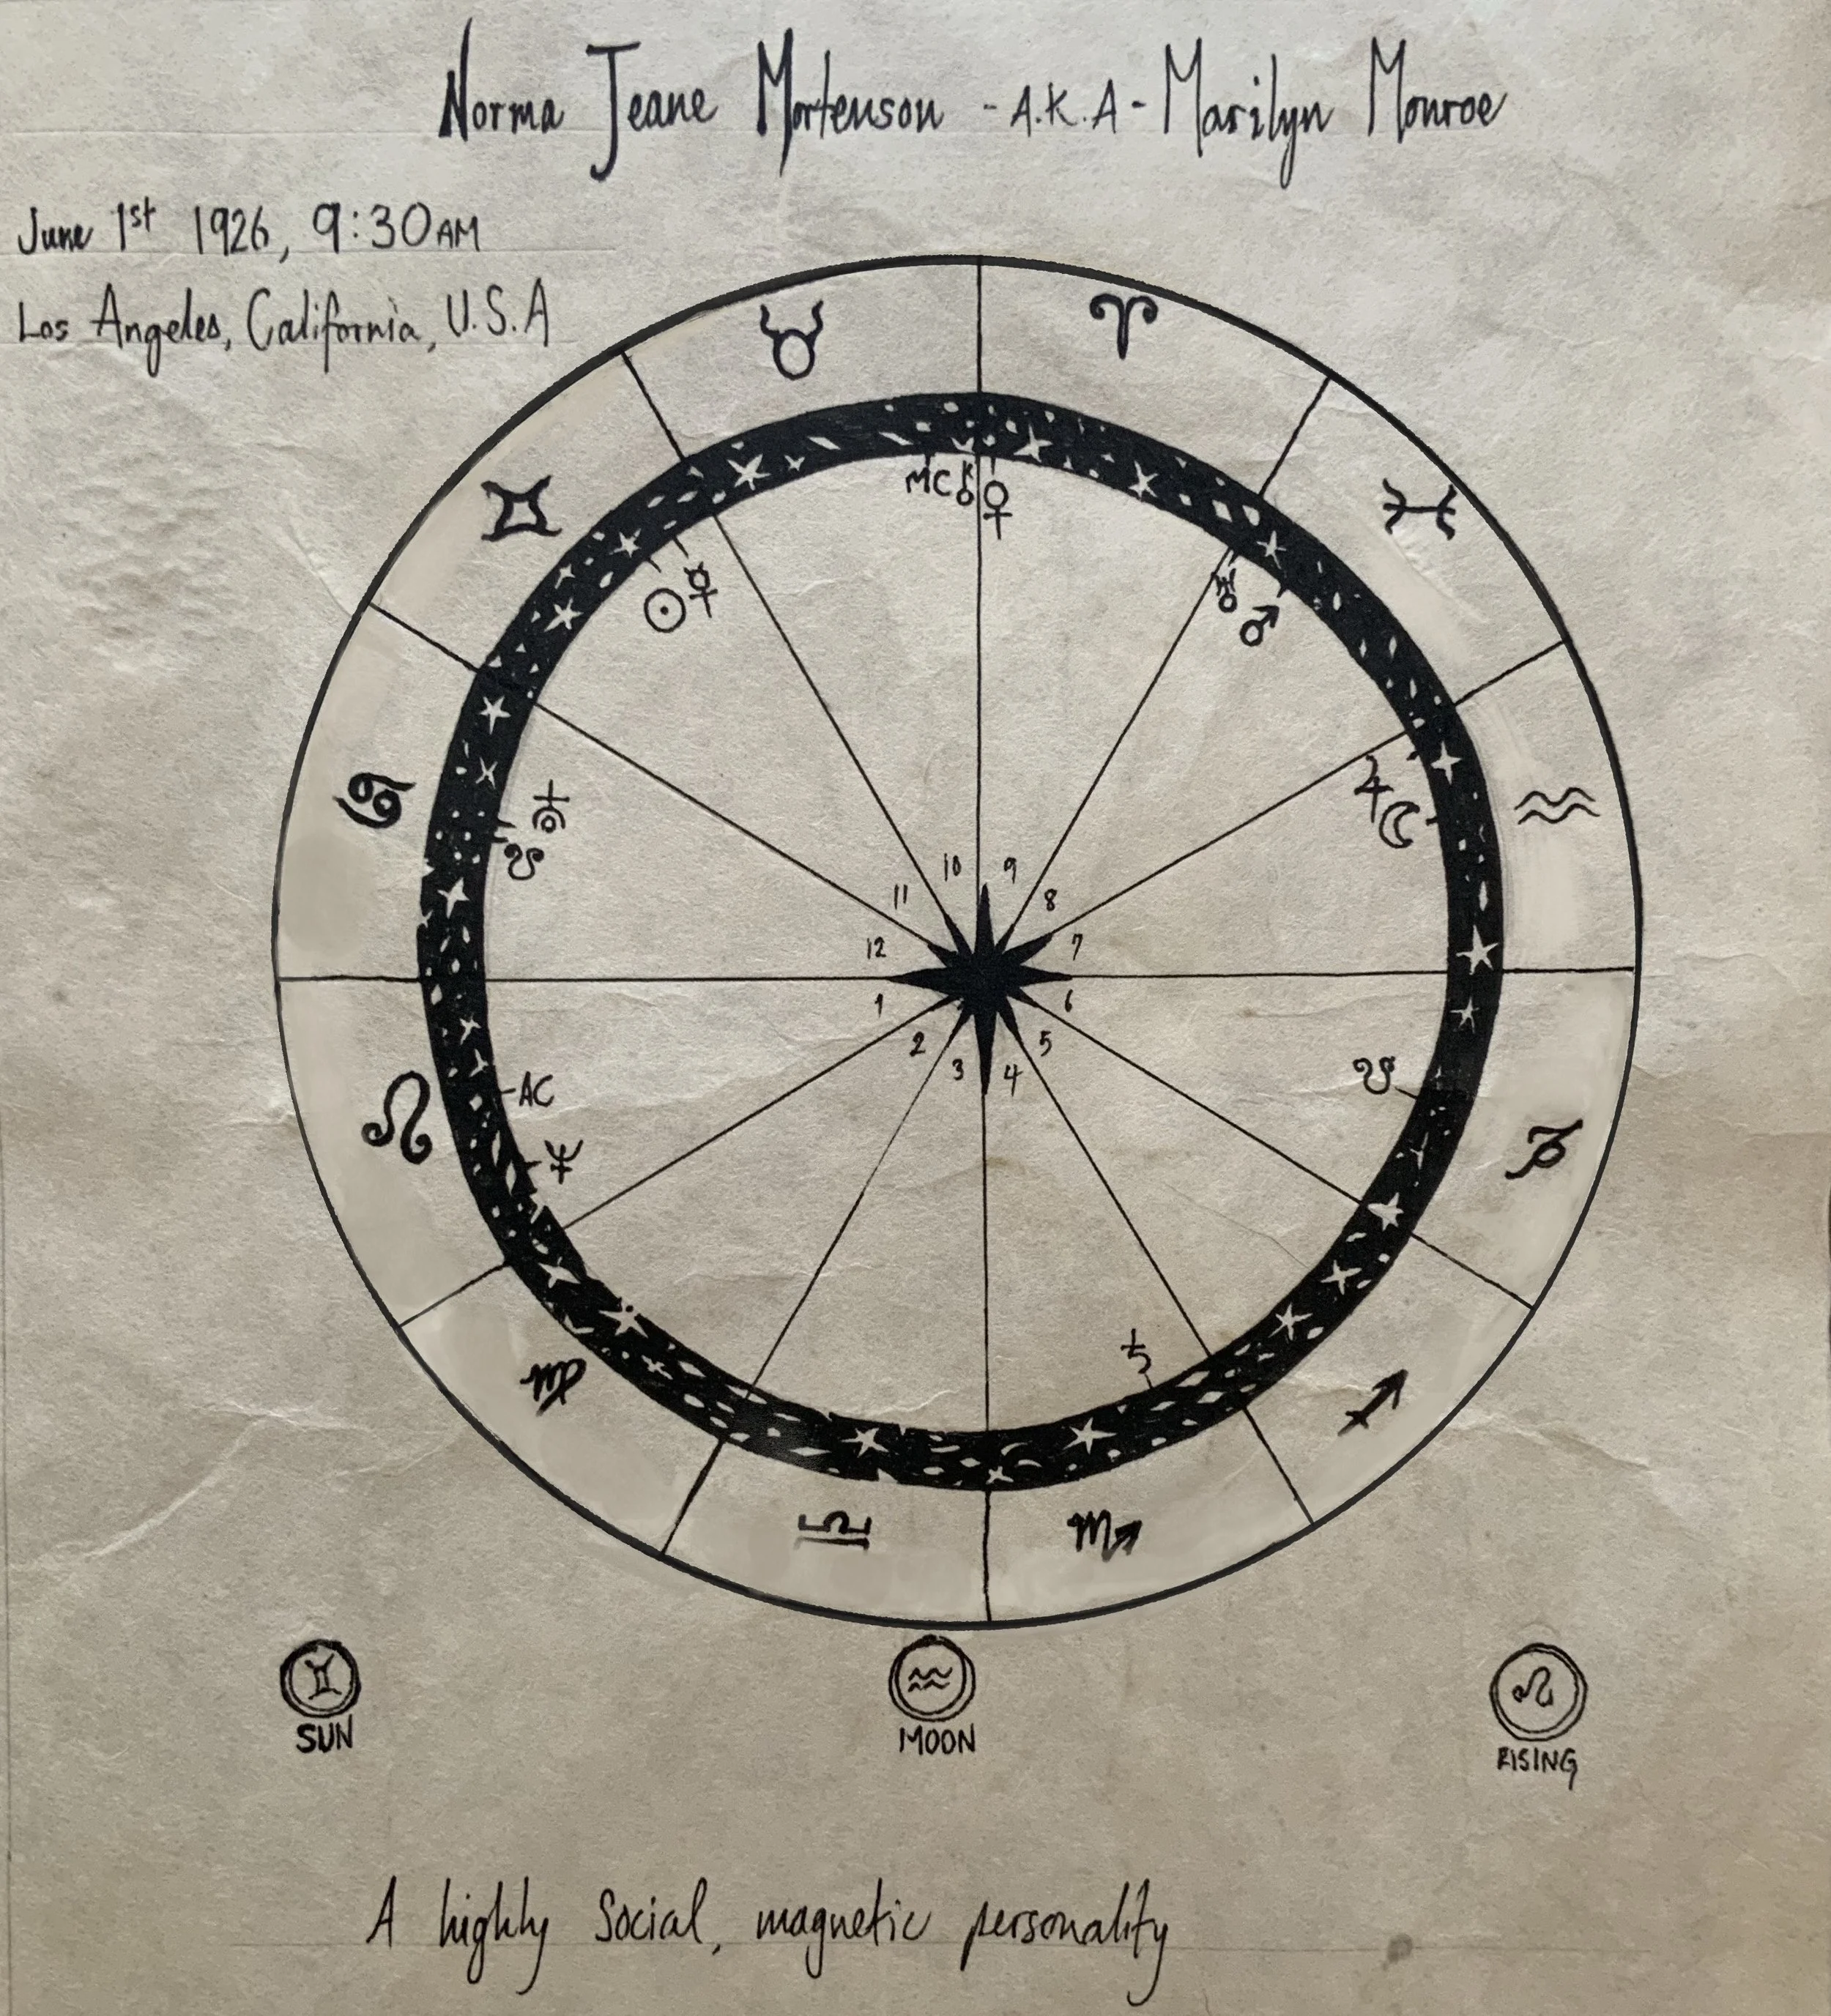 Norma Jeane Mortenson - A.K.A - Marilyn Monroe
June 1st 1926, 9:30AM
Los Angeles, California, U.S.A
♉ ♈
♊ ♓
MC ⚷ ♀
☉ ☿ ♅ ♂
♋ ♒
♃ ☾
☋
10 9
11 8
12 7
1 6
2 5
3 4
AC ☋
♌ ♑
♆
♄
♍ ♐
♎ ♏
♊ ♒ ♌
SUN MOON RISING
A highly social, magnetic personality